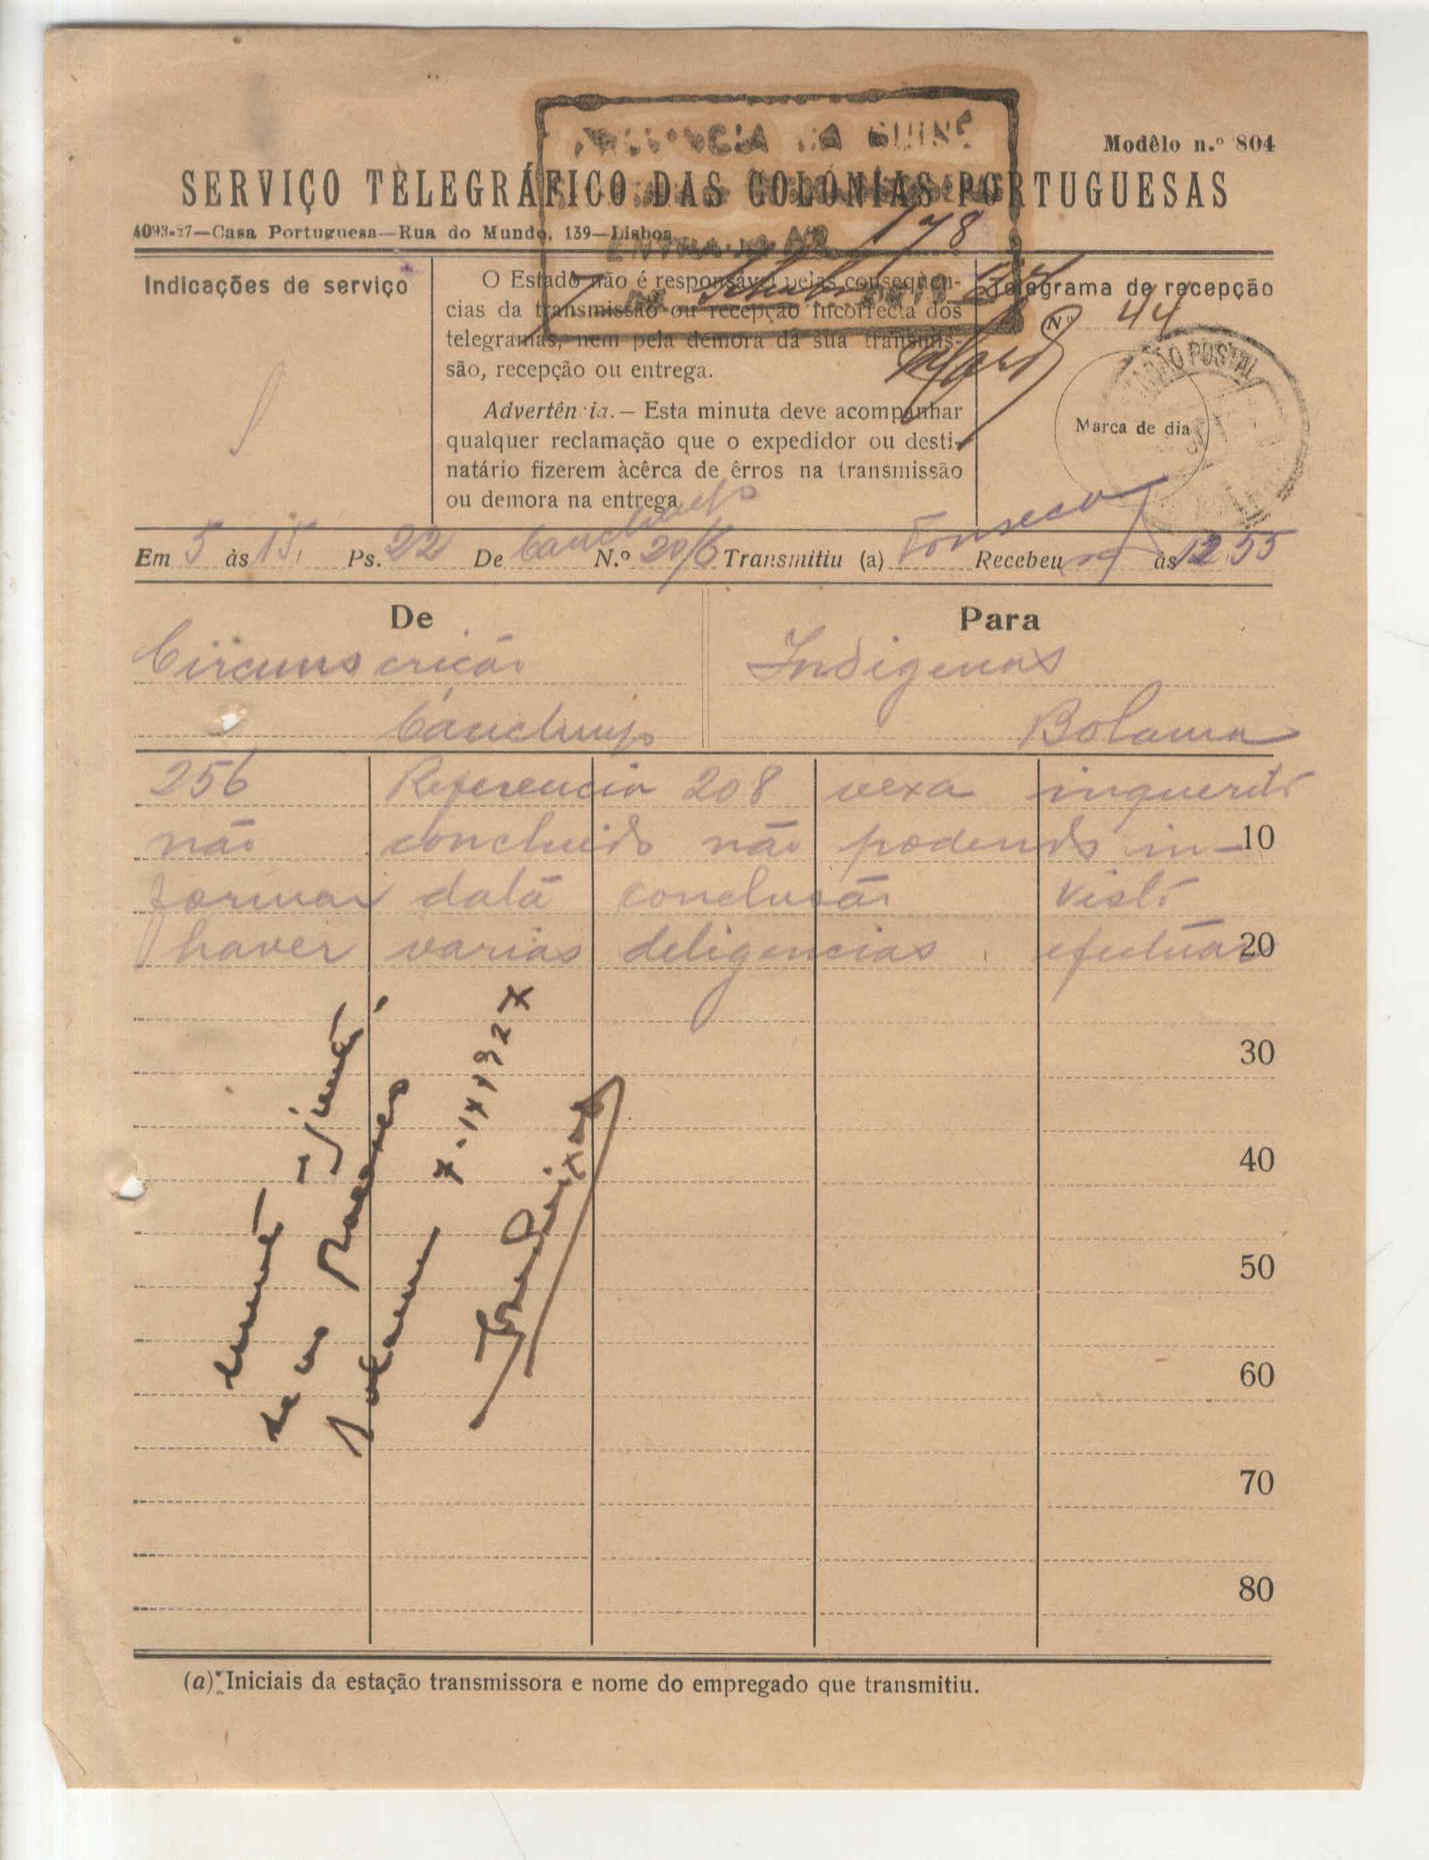 Modêlo n.º 804
SERVIÇO TELEGRÁFICO DAS COLÓNIAS PORTUGUESAS
4093-27—Casa Portuguesa—Rua do Mundo, 139—Lisboa
178
Indicações de serviço
O Estado não é responsável pelas conseqüên-
cias da transmissão ou recepção incorrecta dos
telegramas, nem pela demora da sua transmis-
são, recepção ou entrega.
Advertência.— Esta minuta deve acompanhar
qualquer reclamação que o expedidor ou desti-
natário fizerem àcêrca de êrros na transmissão
ou demora na entrega
Telegrama de recepção
N.º 44
Marca de dia
POSTAL
Em 5 às 15 Ps. 22 De Canchungo N.º 20/6 Transmitiu (a) Fonseca Recebeu às 12.55
De
Circunscrição
Canchungo
Para
Indigenas
Bolama
256 Referencia 208 vexa inquerito
não concluido não podendo in- 10
formar data conclusão visto
haver varias deligencias efectuar 20
30
40
50
60
70
80
7-IX-1927
(a) Iniciais da estação transmissora e nome do empregado que transmitiu.